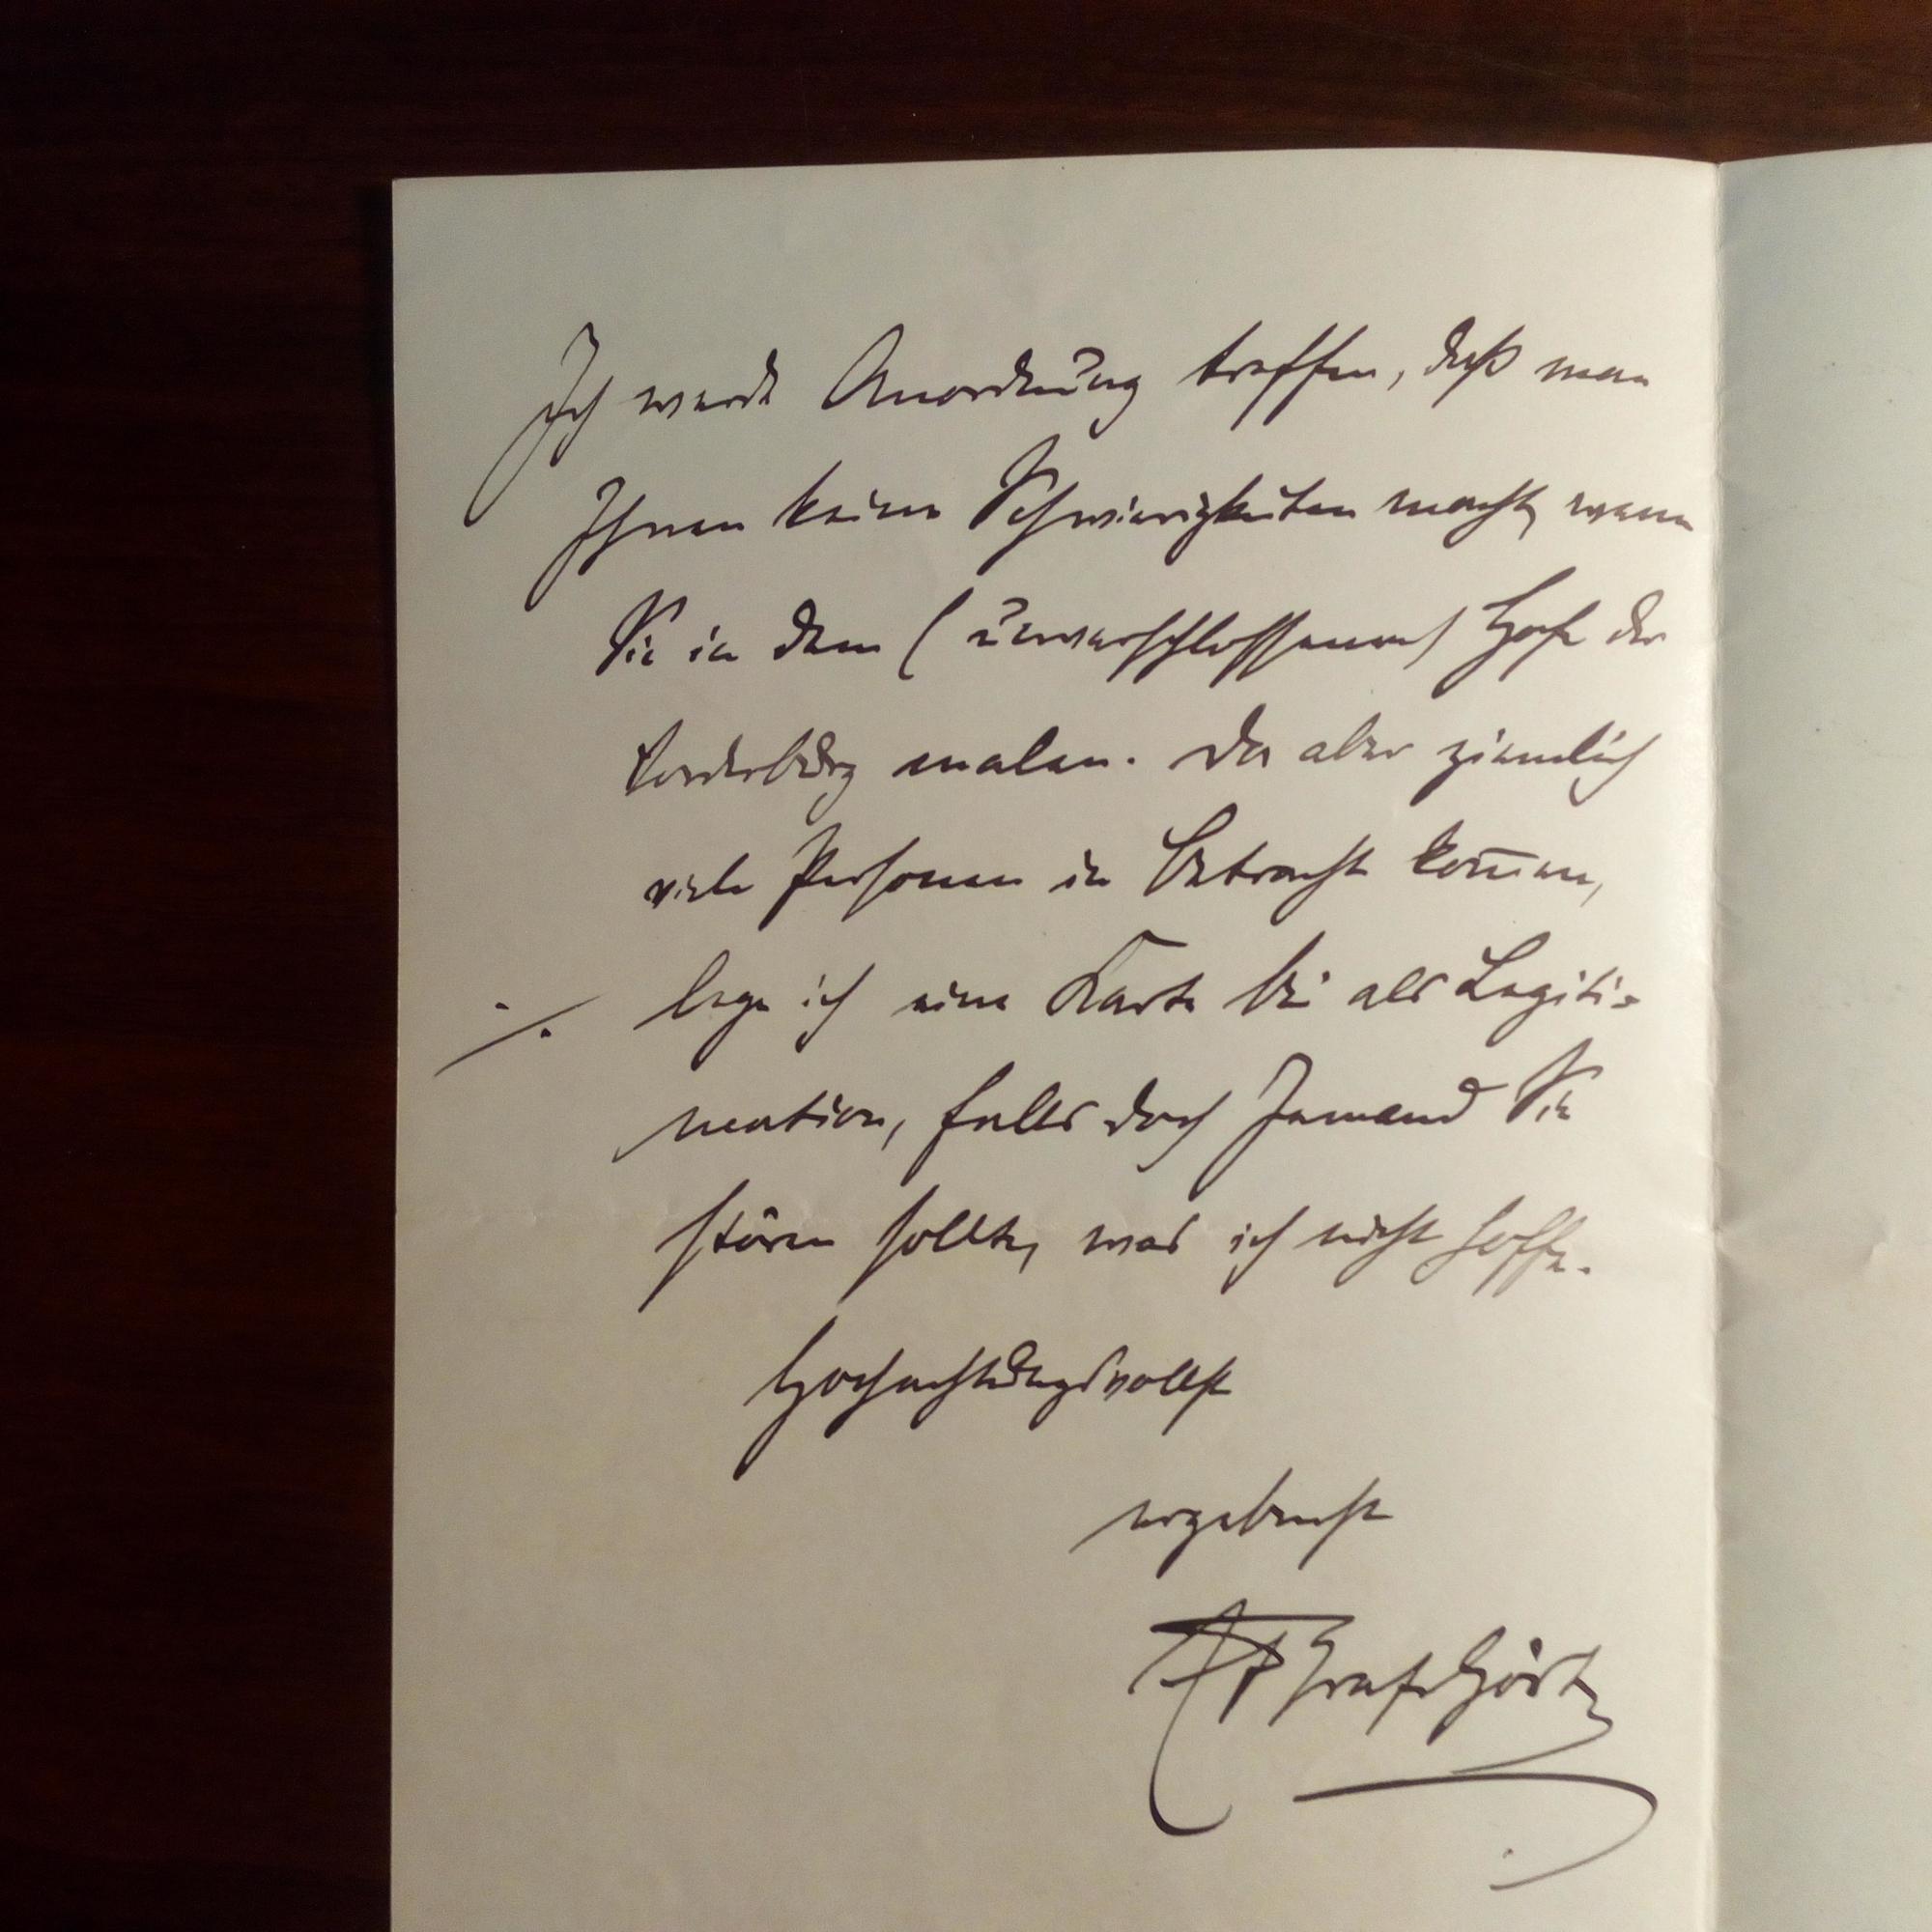 Ich werde Anordnung treffen, daß man
Ihnen keine Schwierigkeiten macht, wenn
Sie in dem (unverschlossenen) Hofe der
Vorderburg malen. Da aber ziemlich
viele Personen in Betracht kom̅en,
·/. lege ich eine Karte bei als Legiti=
mation, falls doch Jemand Sie
stören sollte, was ich nicht hoffe.
Hochachtungsvollst
ergebenst
Graf Görtz